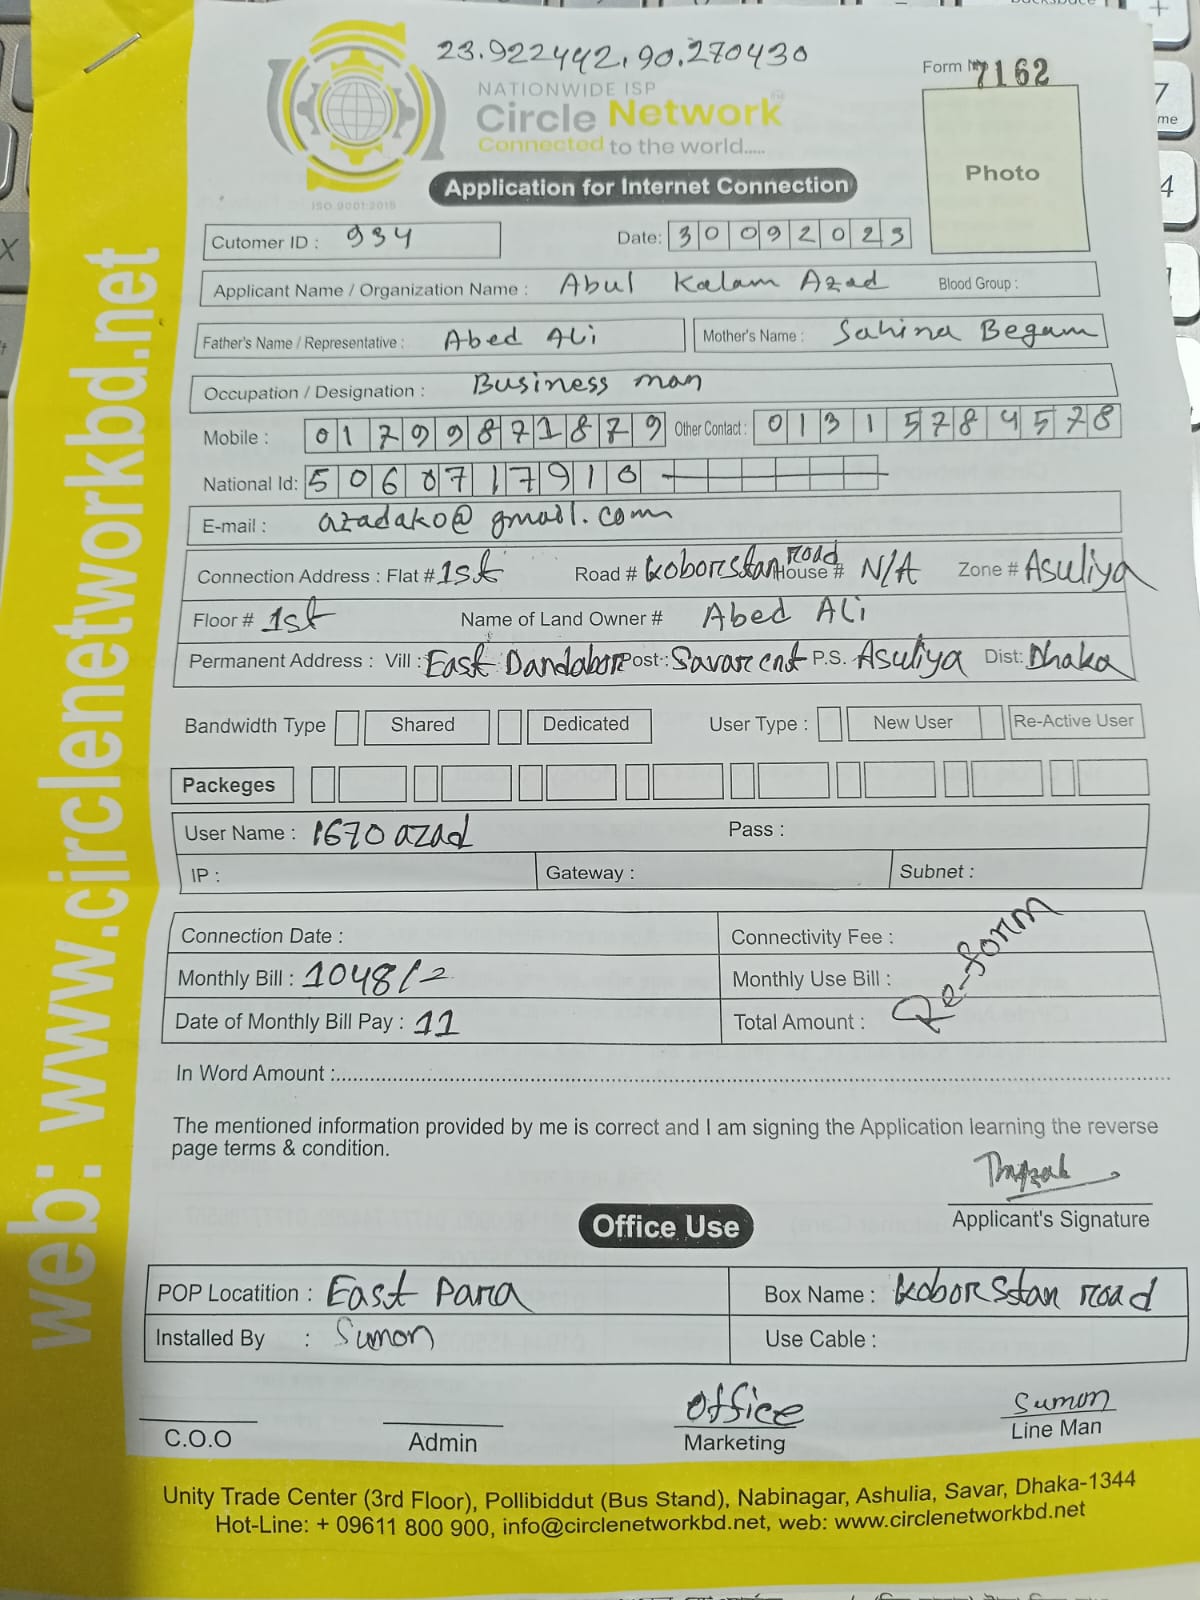 23.922442, 90.270430
Form No 7162
NATIONWIDE ISP
Circle Network
Connected to the world.....
ISO 9001:2015
Photo
Application for Internet Connection
Cutomer ID : 934 Date: 30092023
Applicant Name / Organization Name : Abul Kalam Azad Blood Group :
Father's Name / Representative : Abed Ali Mother's Name : Sahina Begam
Occupation / Designation : Business man
Mobile : 01799871879 Other Contact : 01315784578
National Id: 5060717910
E-mail : azadako@gmail.com
Connection Address : Flat # 1st Road # Koborstan road House # N/A Zone # Asuliya
Floor # 1st Name of Land Owner # Abed Ali
Permanent Address : Vill : East Dandabor Post : Savar cent P.S. Asuliya Dist: Dhaka
Bandwidth Type Shared Dedicated User Type : New User Re-Active User
Packeges
User Name : 1670azad Pass :
IP : Gateway : Subnet :
Connection Date : Connectivity Fee :
Monthly Bill : 1048/= Monthly Use Bill :
Date of Monthly Bill Pay : 11 Total Amount :
Re-form
In Word Amount :
The mentioned information provided by me is correct and I am signing the Application learning the reverse
page terms & condition.
Applicant's Signature
Office Use
POP Locatition : East Para Box Name : Koborstan road
Installed By : Sumon Use Cable :
C.O.O Admin Office Marketing Sumon Line Man
Unity Trade Center (3rd Floor), Pollibiddut (Bus Stand), Nabinagar, Ashulia, Savar, Dhaka-1344
Hot-Line: + 09611 800 900, info@circlenetworkbd.net, web: www.circlenetworkbd.net
web: www.circlenetworkbd.net